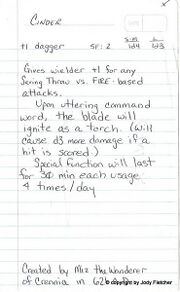 CINDER
S-M L
+1 dagger SF: 2 1d4 1d3
Gives wielder +1 for any
Saving Throw vs. FIRE-based
attacks.
Upon uttering command
word, the blade will
ignite as a torch. (Will
cause d3 more damage if a
hit is scored.)
Special function will last
for 30 min each usage
4 times/day
Created by Miz the Wanderer
of Crennia in
© copyright by Jody Fletcher